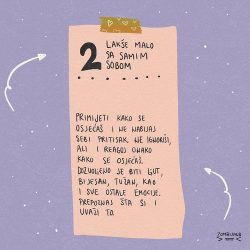 2
LAKŠE MALO
SA SAMIM
SOBOM
PRIMIJETI KAKO SE
OSJEĆAŠ I NE NABIJAJ
SEBI PRITISAK NE IGNORIŠI,
ALI I REAGUJ ONAKO
KAKO SE OSJEĆAŠ.
DOZVOLJENO JE BITI LJUT,
BIJESAN, TUŽAN, KAO
I SVE OSTALE EMOCIJE.
PREPOZNAJ ŠTA SI I
UVAŽI TO
ZOMBIJANA